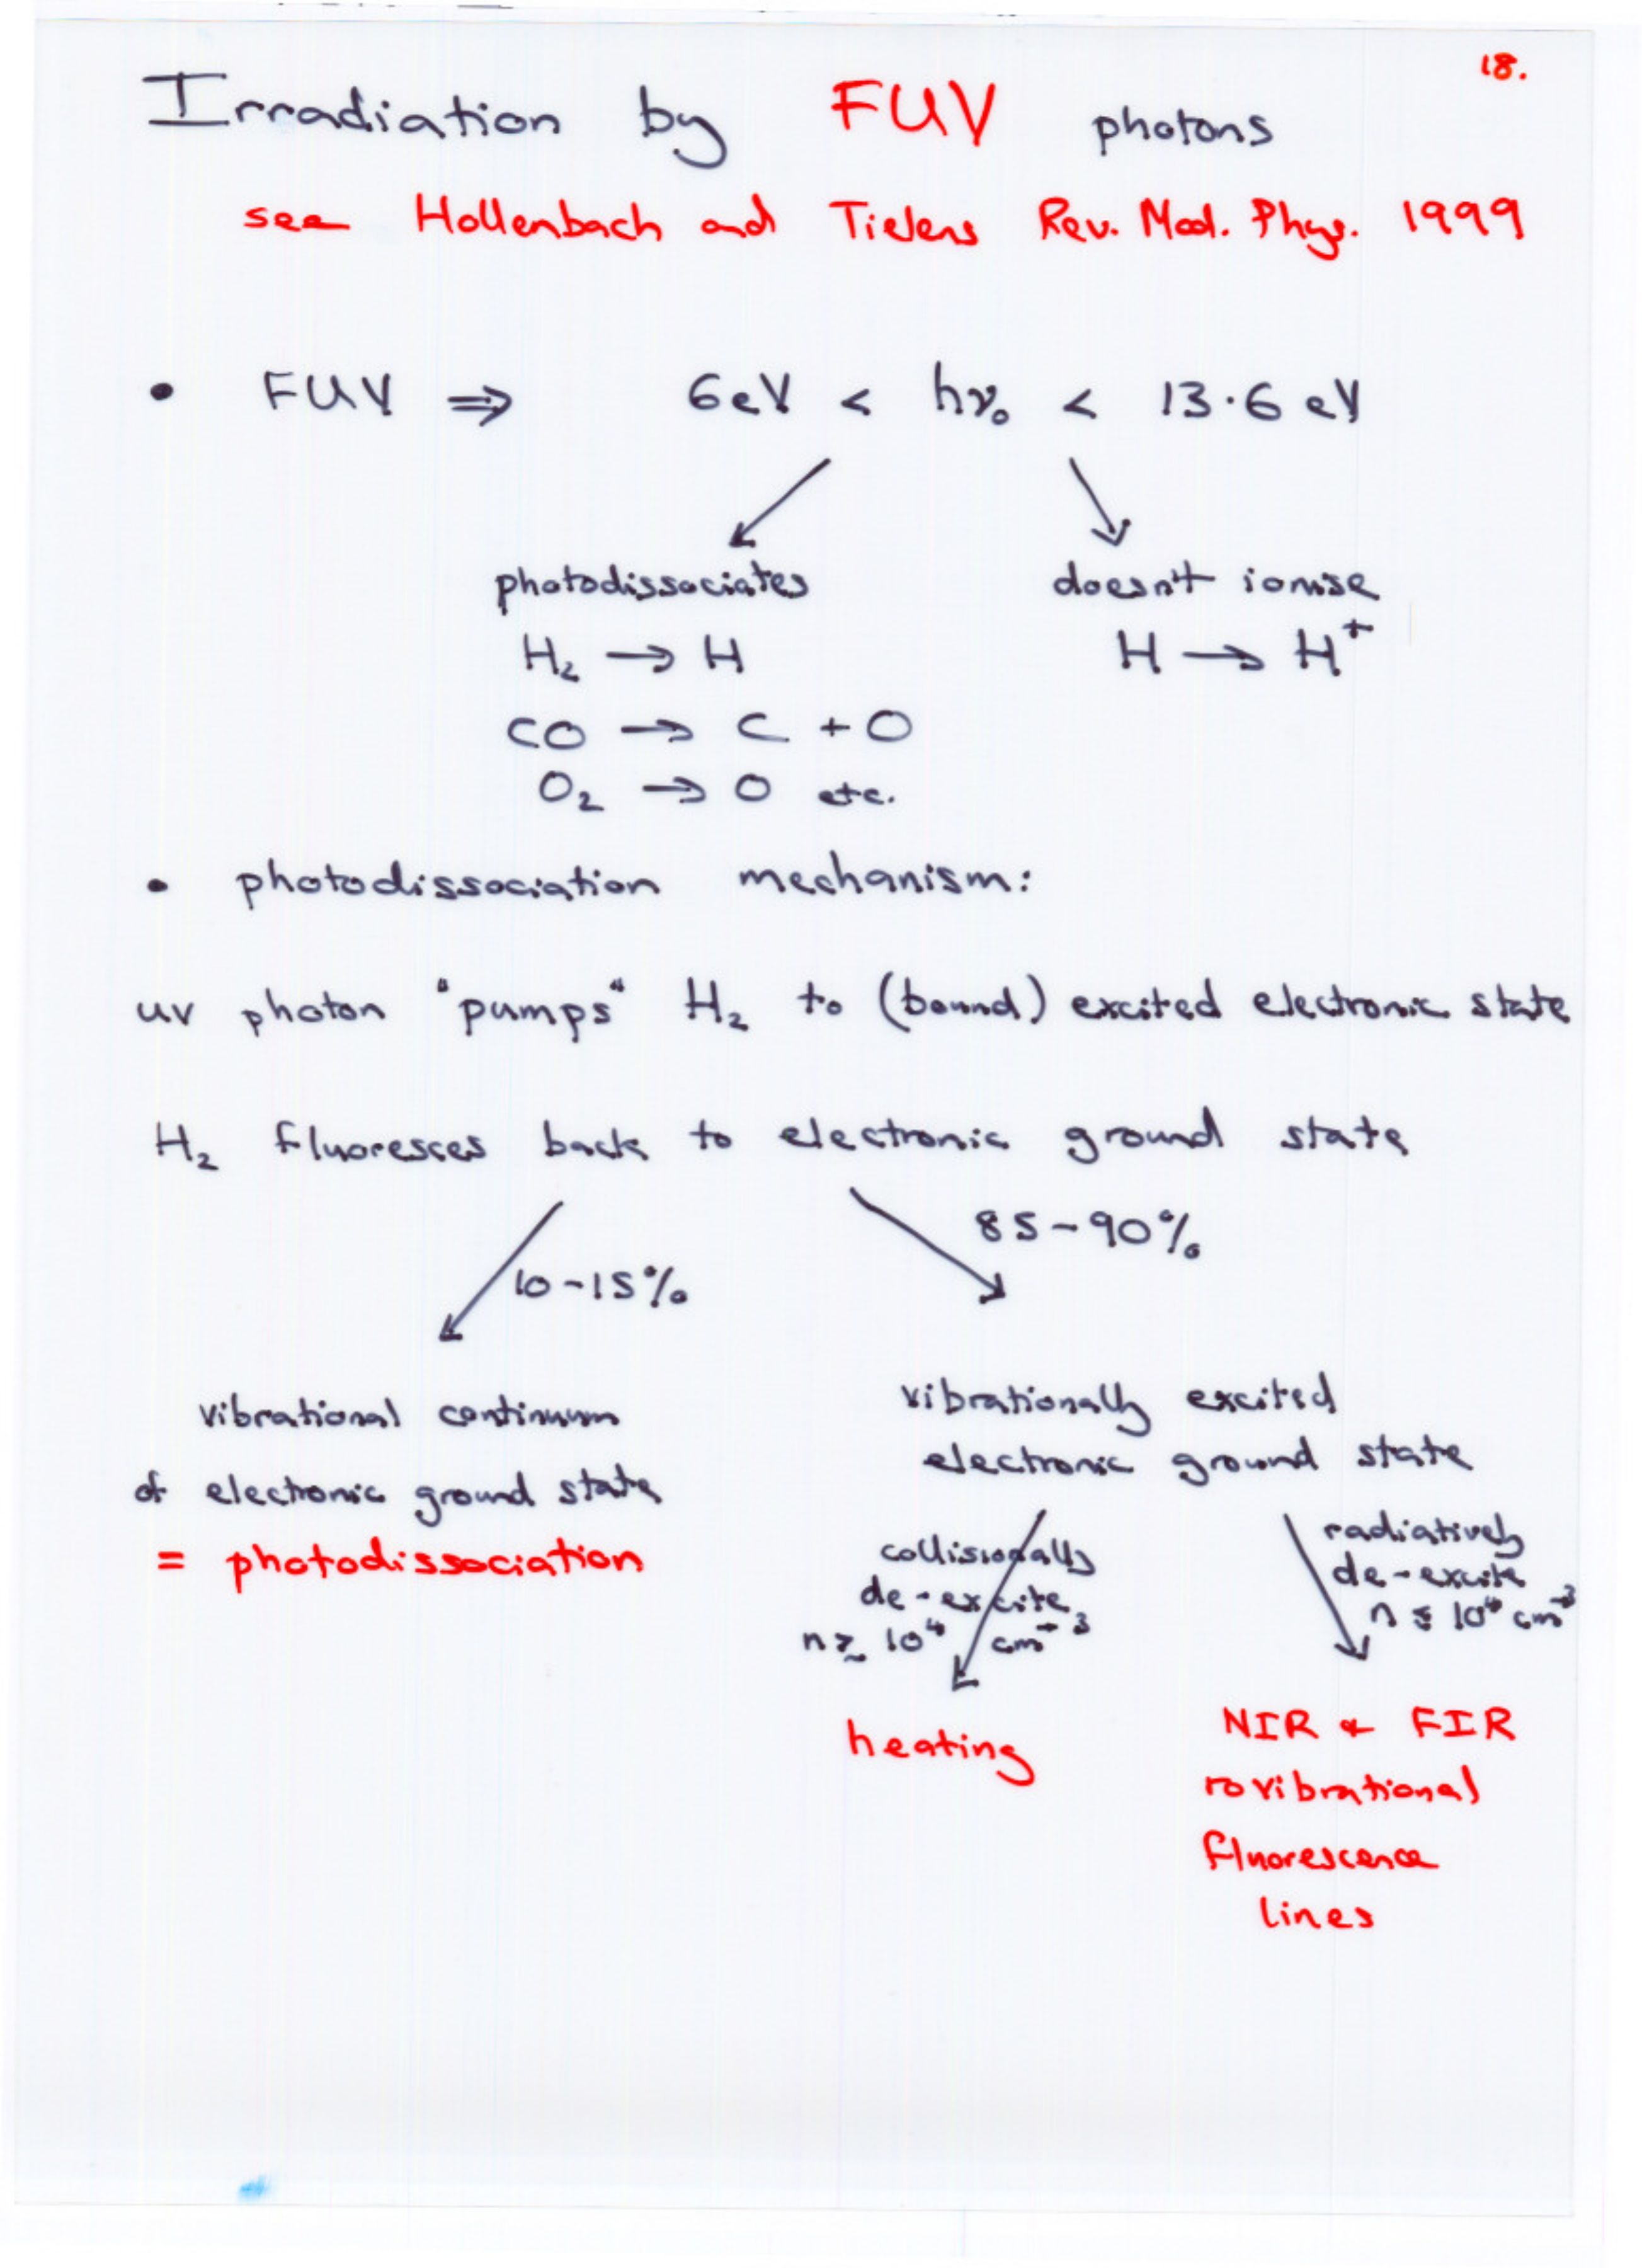 18.
Irradiation by FUV photons
see Hollenbach and Tielens Rev. Mod. Phys. 1999
• FUV ⇒ 6eV < hν₀ < 13.6 eV
photodissociates doesn't ionise
H₂ → H H → H⁺
CO → C + O
O₂ → O etc.
• photodissociation mechanism:
uv photon "pumps" H₂ to (bound) excited electronic state
H₂ fluoresces back to electronic ground state
10-15% 85-90%
vibrational continuum
of electronic ground state
= photodissociation
vibrationally excited
electronic ground state
collisionally
de-excite
n ≳ 10⁴ cm⁻³
heating
radiatively
de-excite
n ≲ 10⁴ cm⁻³
NIR & FIR
rovibrational
fluorescence
lines